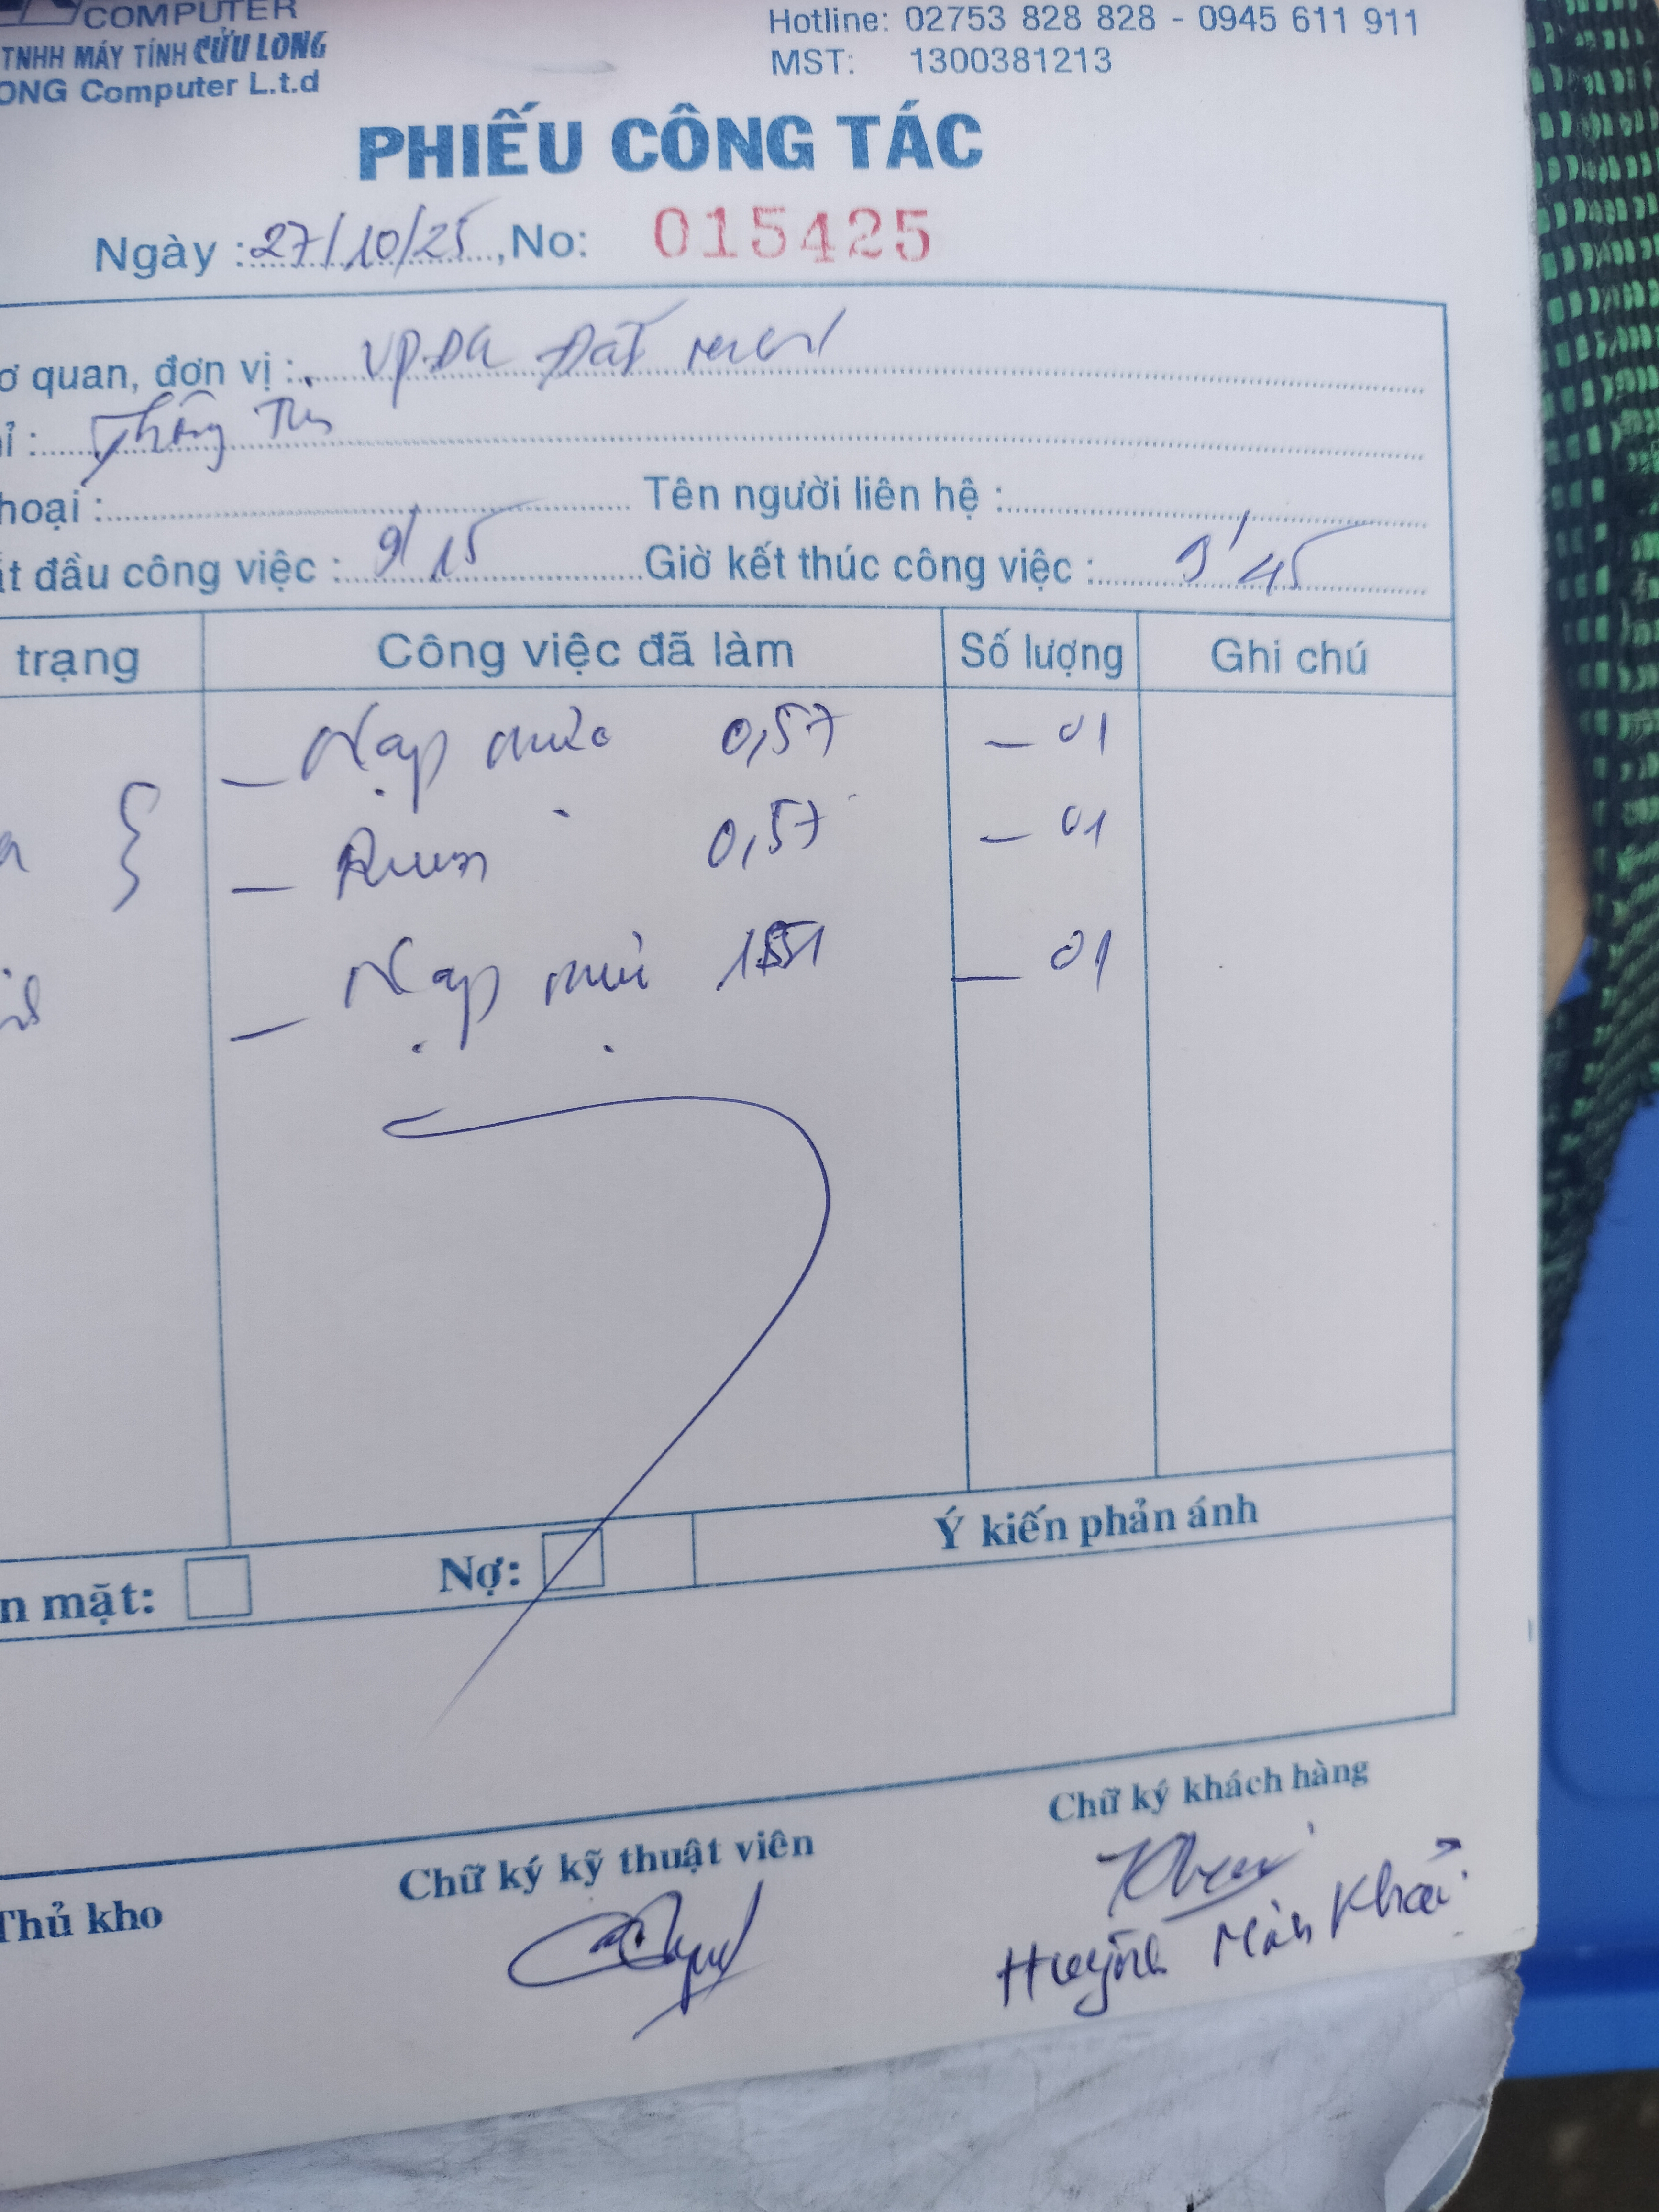 COMPUTER
TNHH MÁY TÍNH CỬU LONG
ONG Computer L.t.d
Hotline: 02753 828 828 - 0945 611 911
MST: 1300381213
PHIẾU CÔNG TÁC
Ngày : 27/10/25, No: 015425
ơ quan, đơn vị : VPĐK Đất
ỉ :
hoại : Tên người liên hệ :
ắt đầu công việc : 9/15 Giờ kết thúc công việc : 9/45
trạng Công việc đã làm Số lượng Ghi chú
- Nạp mực 0,57 - 01
- Drum 0,57 - 01
- Nạp mực - 01
n mặt: Nợ: Ý kiến phản ánh
Thủ kho Chữ ký kỹ thuật viên Chữ ký khách hàng
Huỳnh Khải